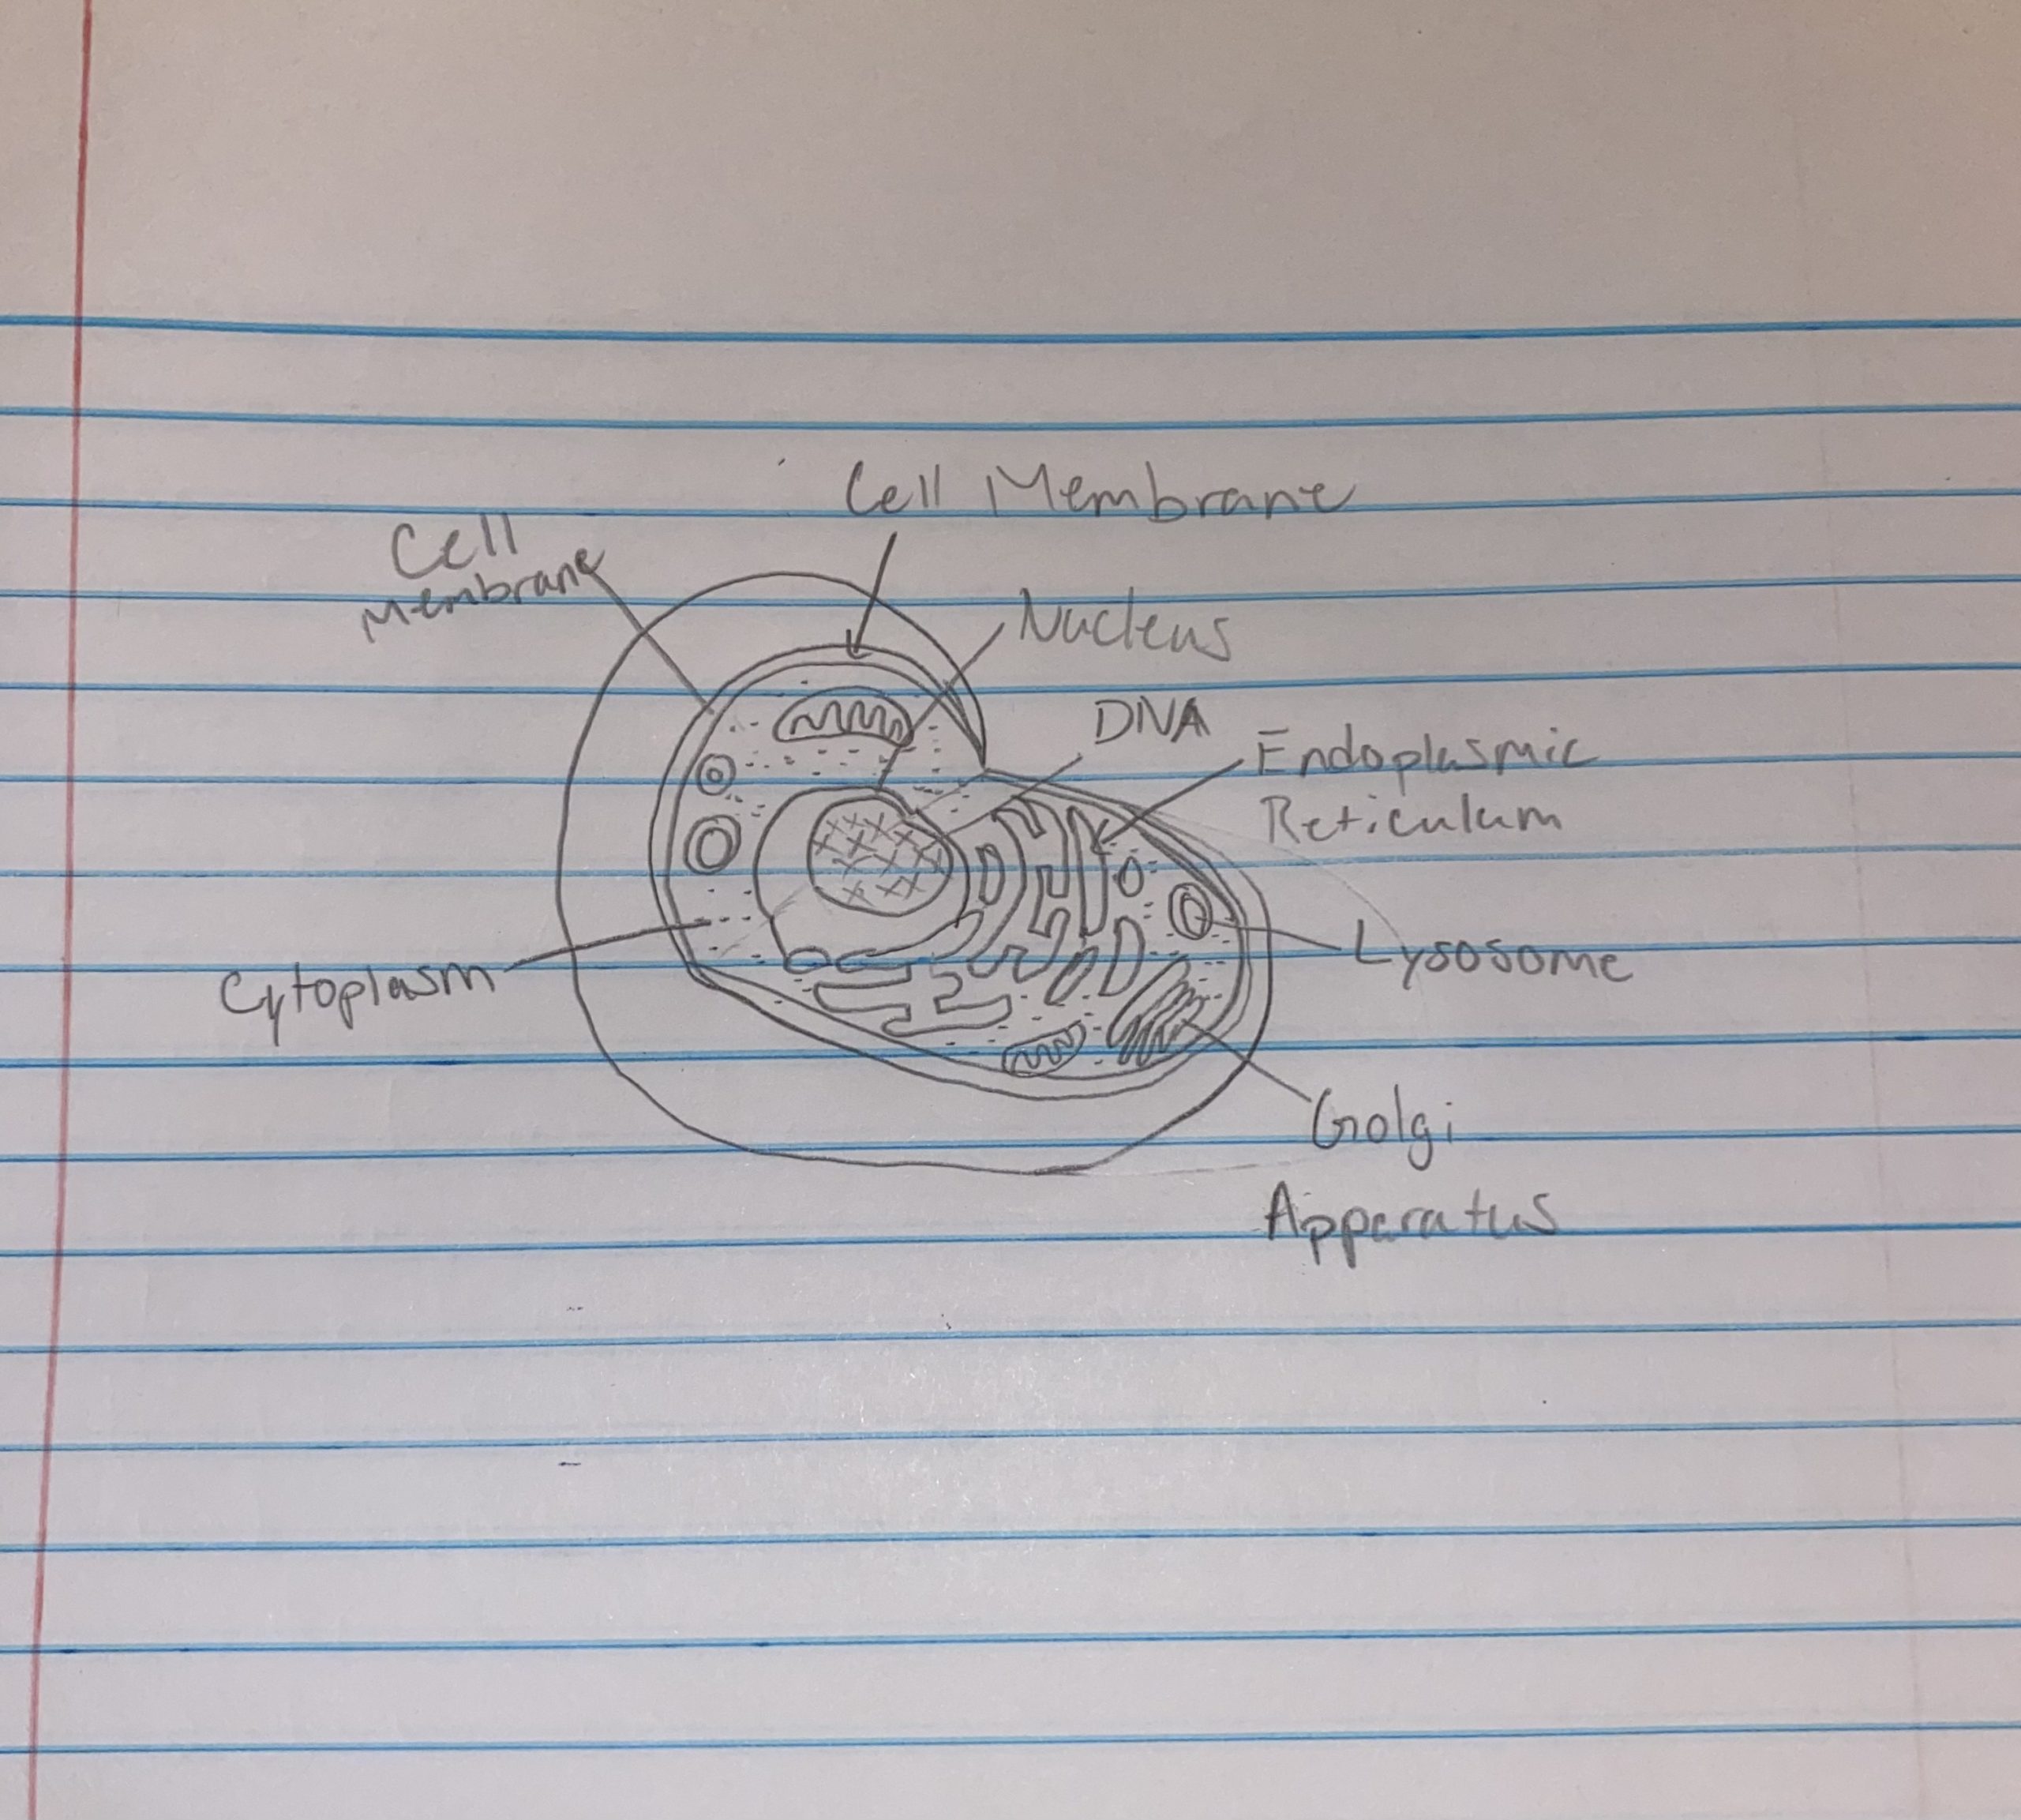 Cell Membrane
Cell
Membrane
Nucleus
DNA
Endoplasmic
Reticulum
Lysosome
Cytoplasm
Golgi
Apparatus